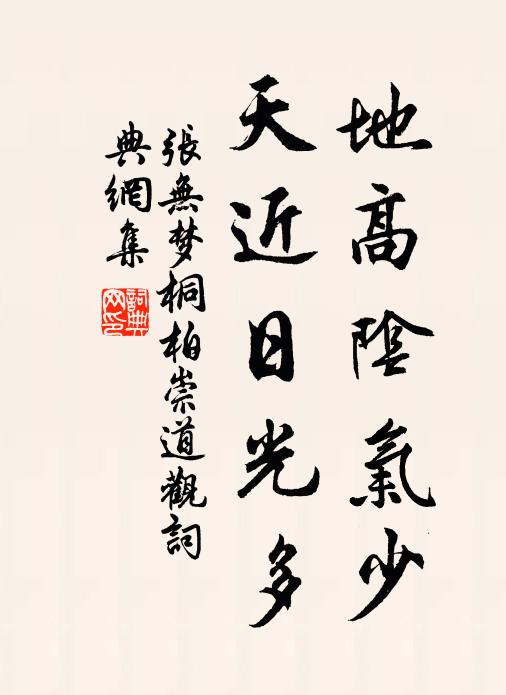 地高陰氣少
天近日光多
張無梦桐柏崇道觀詞
典網集
詞典
网印